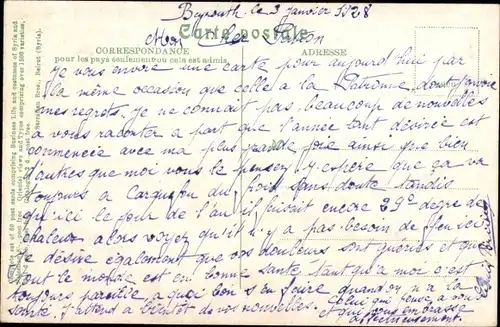 Beyrouth le 3 janvier 1928
Mon cher Patron
Carte postale
CORRESPONDANCE
ADRESSE
pour les pays seulement ou cela est admis.
je vous envoie une carte pour aujourd'hui par
la même occasion que celle a la Patronne, dont j'envoie
mes regrets. je ne connait pas beaucoup de nouvelles
a vous raconter a part que l'année tant désirée est
commencée avec ma plus grande joie ainsi que bien
d'autres que moi vous le pensez j'espère que ça va
toujours a Carquefou du froid sans doute tandis
qu'ici le jour de l'an il faisait encore 29° degre de
chaleur alors voyez qu'il n'y a pas besoin de
je désire également que vos douleurs sont guéries et que
tout le monde est en bonne santé tant qu'a moi c'est
toujours pareille a quoi bon s'en faire quand on y a la
santé. J'attend a bientot de vos nouvelles.
Celui qui pense a vous
et qui vous embrasse
affectueusement.
Sarrafian Bros., Beirut (Syria).